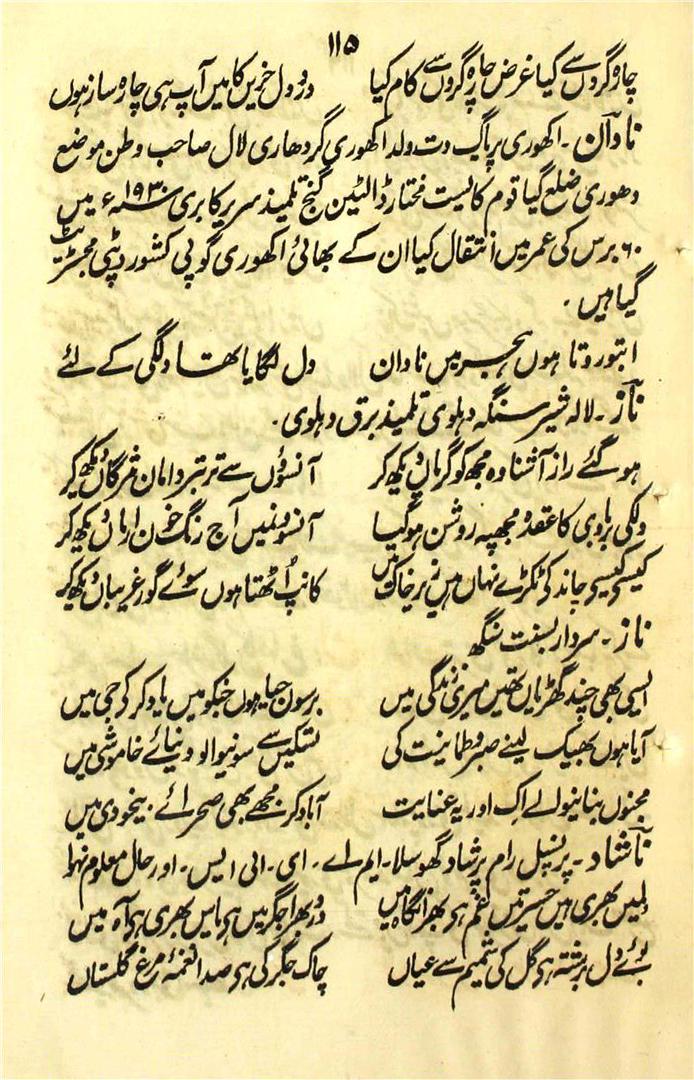 ۱۱۵
چارہ گروں سے کیا غرض چارہ گروں سے کام کیا درد دل حزیں کا میں آپ ہی چارہ ساز ہوں
نادآن ۔ اکھوری پراگ دت ولد اکھوری گردھاری لال صاحب وطن موضع
دھوری ضلع گیا قوم کایست مختار ڈالٹین گنج تلمیذ سریر کابری ۱۹۳۰ء میں
۶۰ برس کی عمر میں انتقال کیا ان کے بھائی اکھوری گوپی کشور ڈپٹی مجسٹریٹ
گیا ہیں ۔
اب تو روتا ہوں ہجر میں نادان دل لگایا تھا دلگی کے لئے
نآز ۔ لالہ شیر سنگہ دہلوی تلمیذ برق دہلوی ۔
ہو گئے راز آشنا وہ مجھ کو گریاں دیکھ کر آنسوؤں سے تر تبر دامان مژگاں دیکھ کر
دلکی بربادی کا عقدہ مجھپہ روشن ہو گیا آنسوونمیں آج رنگ خون ارماں دیکھ کر
کیسی کیسی چاند کی ٹکڑے نہاں ہیں زیر خاک میں کانپ اُٹھتا ہوں سوئے گور غریباں دیکھ کر
ناز ۔ سردار بسنت سنگھ
ایسی بھی چند گھڑیاں تھیں میری زندگی میں برسوں جیا ہوں جنکو میں یاد کر کی جی میں
آیا ہوں بھیک لینے صبر و طمانیت کی تسکیں سے سونیوالو دنیائے خاموشی میں
مجنوں بنانیوالے اک اور یہ عنایت آباد کر مجھے بھی صحرائے بیخودی میں
نآشاد ۔ پرنسپل رام پرشاد گھوسلا ۔ ایم اے ۔ ای ۔ ائی ایس ۔ اور حال معلوم نہوا
دلمیں بھری ہیں حسرتیں غم ہی بھرا نگاہ میں درد بھرا جگر میں ہی یاس بھری ہی آہ میں
بوئے دل برشتہ ہی گل کی شمیم سے عیاں چاک جگر کی ہی صدا نغمۂ مرغ گلستاں